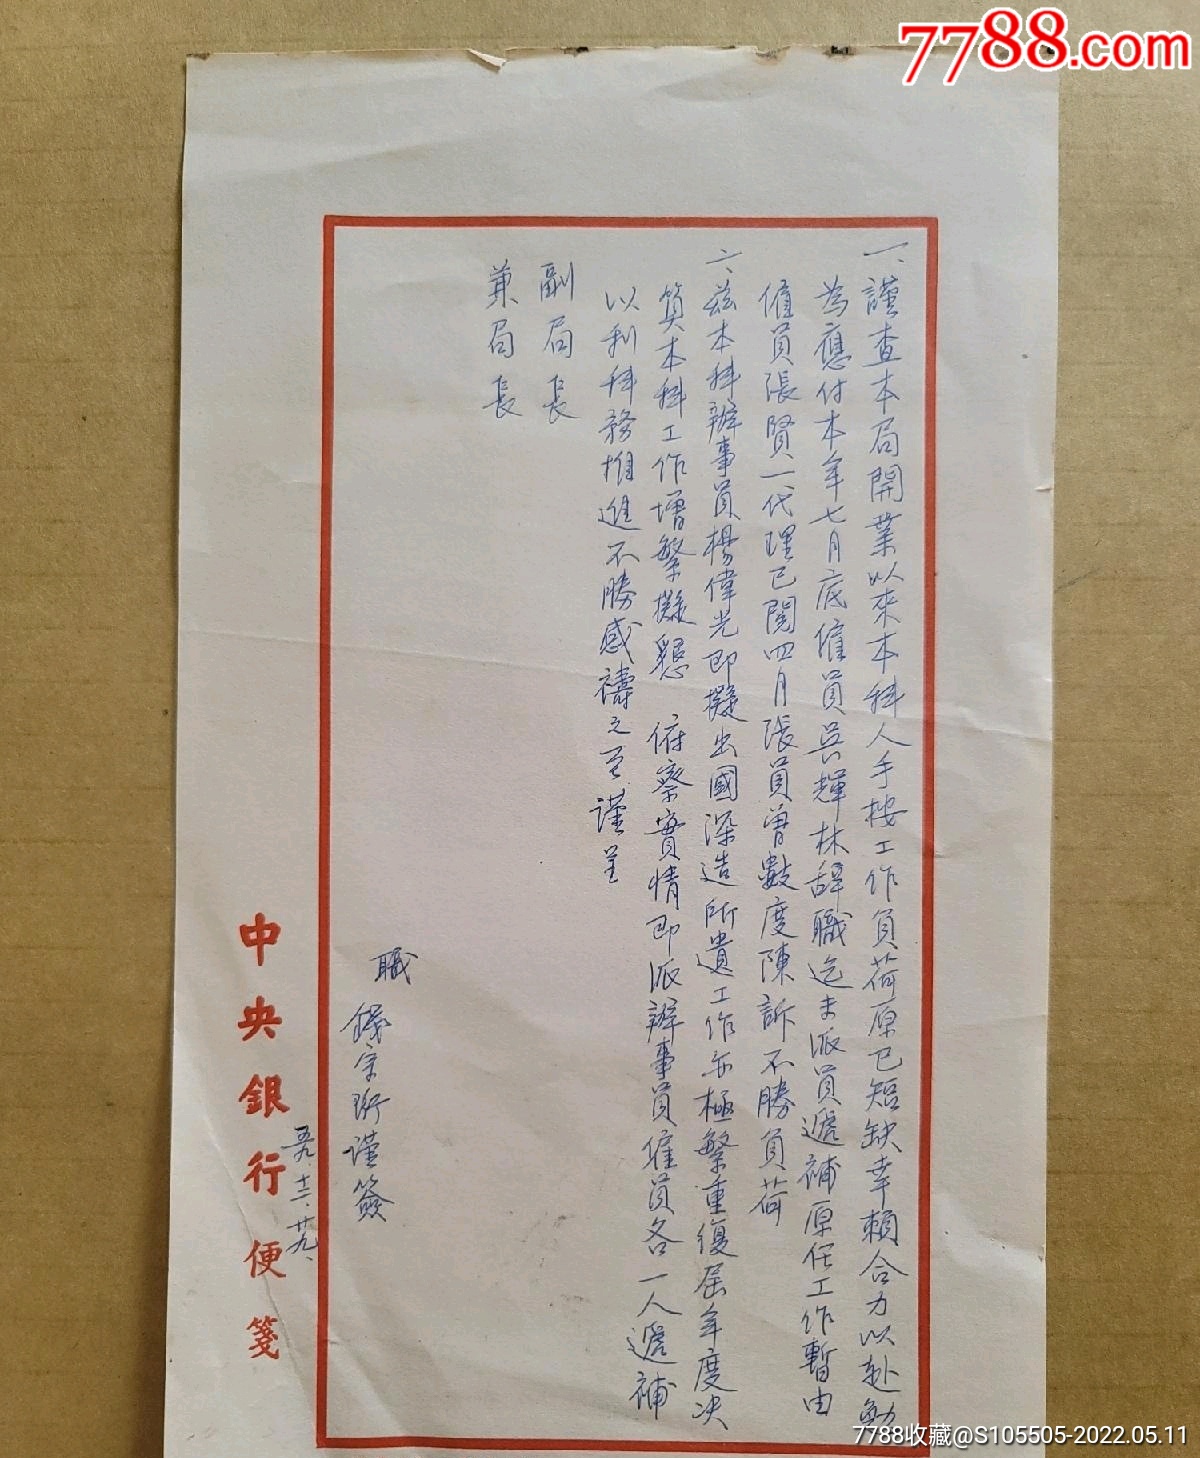 7788.com
一、謹查本局開業以來本科人手按工作負荷原已短缺幸賴合力以赴勉
為應付本年七月底僱員吳輝林辭職迄未派員遞補原任工作暫由
僱員張賢一代理已閱四月張員曾數度陳訴不勝負荷
二、茲本科辦事員楊偉光即擬出國深造所遺工作亦極繁重復屆年度決
算本科工作增繁擬懇 俯察實情即派辦事員僱員各一人遞補
以利科務推進不勝感禱之至謹呈
副局長
兼局長
職 錢宗珩謹簽
五九、十二、廿九、
中央銀行便箋
7788收藏@S105505-2022.05.11